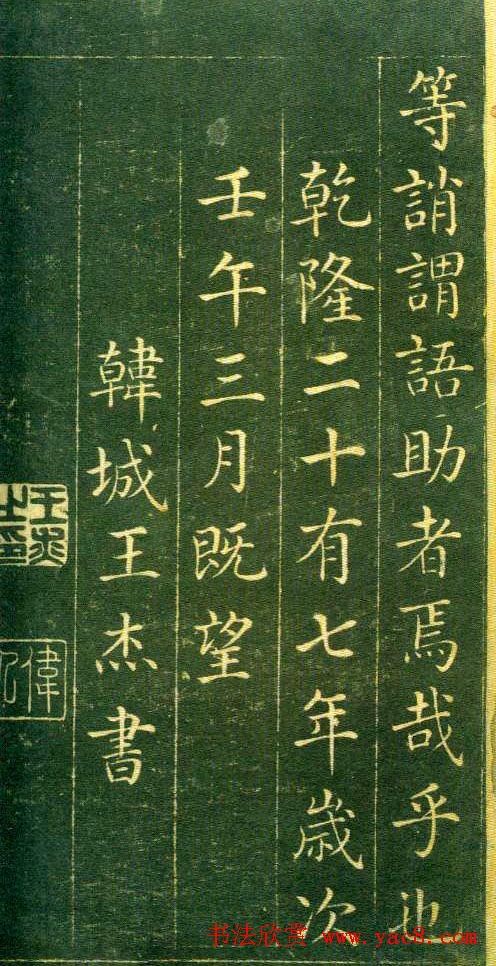 等誚謂語助者焉哉乎也
乾隆二十有七年歲次
壬午三月既望
韓城王杰書
王杰之印
偉人
书法欣赏 www.yac8.com